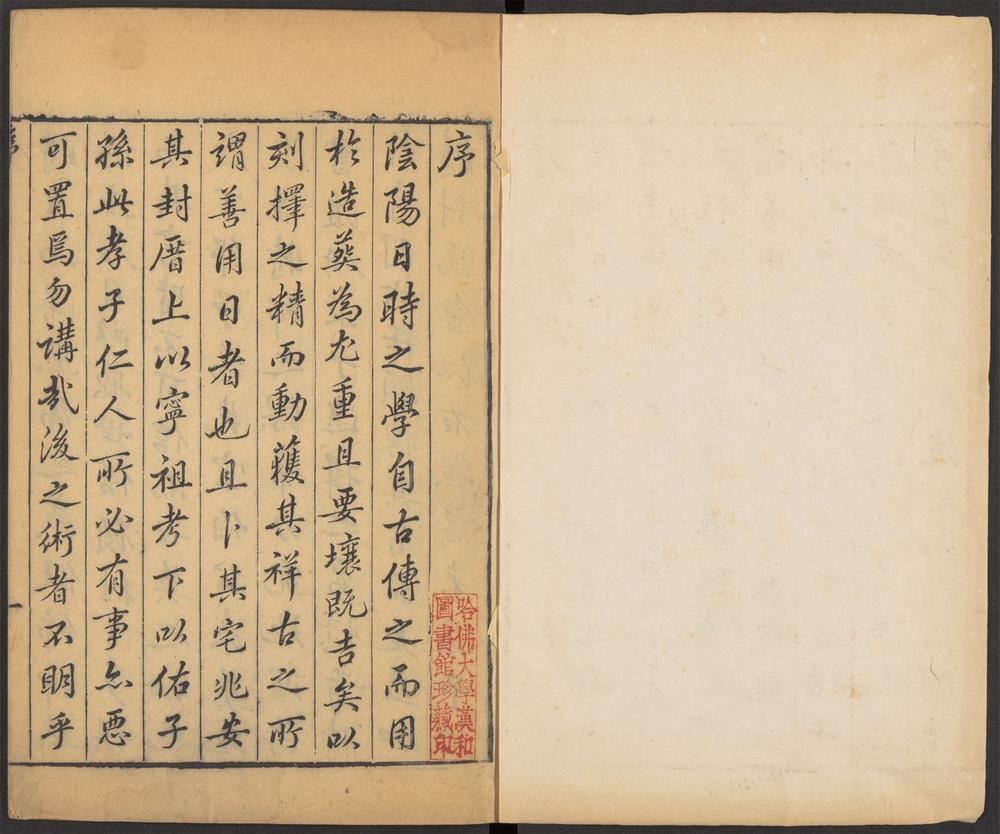 序
陰陽日時之學自古傳之而用
於造葬為尤重且要壤既吉矣以
刻擇之精而動獲其祥古之所
謂善用日者也且卜其宅兆安
其封厝上以寧祖考下以佑子
孫此孝子仁人所必有事亦惡
可置焉勿講哉後之術者不明乎
哈佛大學漢和
圖書館珍藏印
一